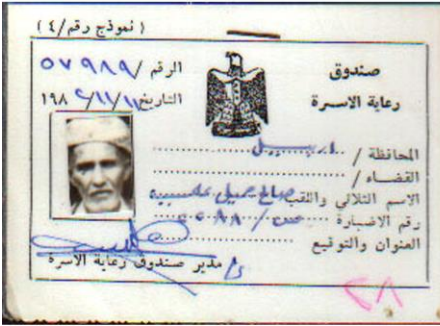 ( نموذج رقم/٤ )
صندوق
رعاية الاسرة
الرقم / ٥٧٩٨٩
التاريخ ١١/١١/ ١٩٨
المحافظة / اربيل
القضاء /
الاسم الثلاثي واللقب صالح
رقم الاضبارة
العنوان والتوقيع
مدير صندوق رعاية الاسرة
٢٨